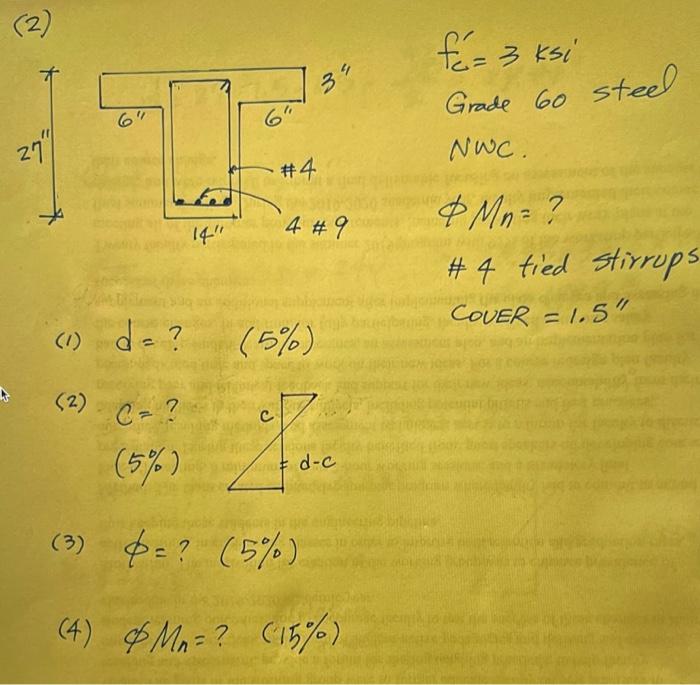 (2)
3"
6"
6"
27"
#4
14"
4 #9
f'c = 3 ksi
Grade 60 steel
NWC.
ϕ Mn = ?
# 4 tied stirrups
COVER = 1.5"
(1) d = ? (5%)
(2) C = ?
(5%)
c
d-c
(3) ϕ = ? (5%)
(4) ϕ Mn = ? (15%)